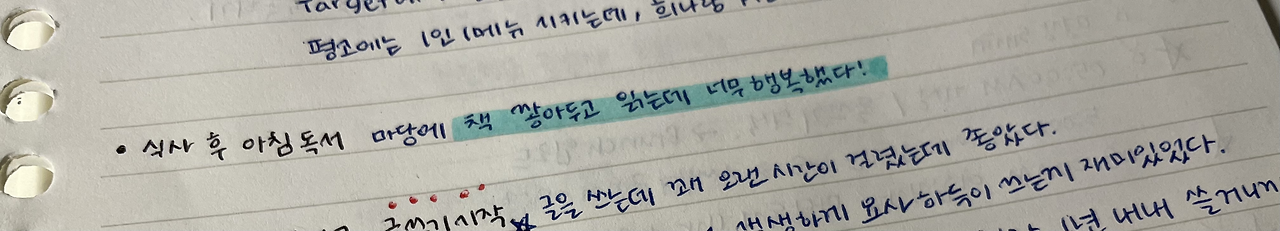 평소에는 1인 1메뉴 시키는데,
• 식사 후 아침 독서 마당에 책 쌓아두고 읽는데 너무 행복했다!
글쓰기 시작 글을 쓰는데 꽤 오랜 시간이 걸렸는데 좋았다.
생생하게 묘사하듯이 쓰는게 재미있었다.
1년 내내 쓸거니